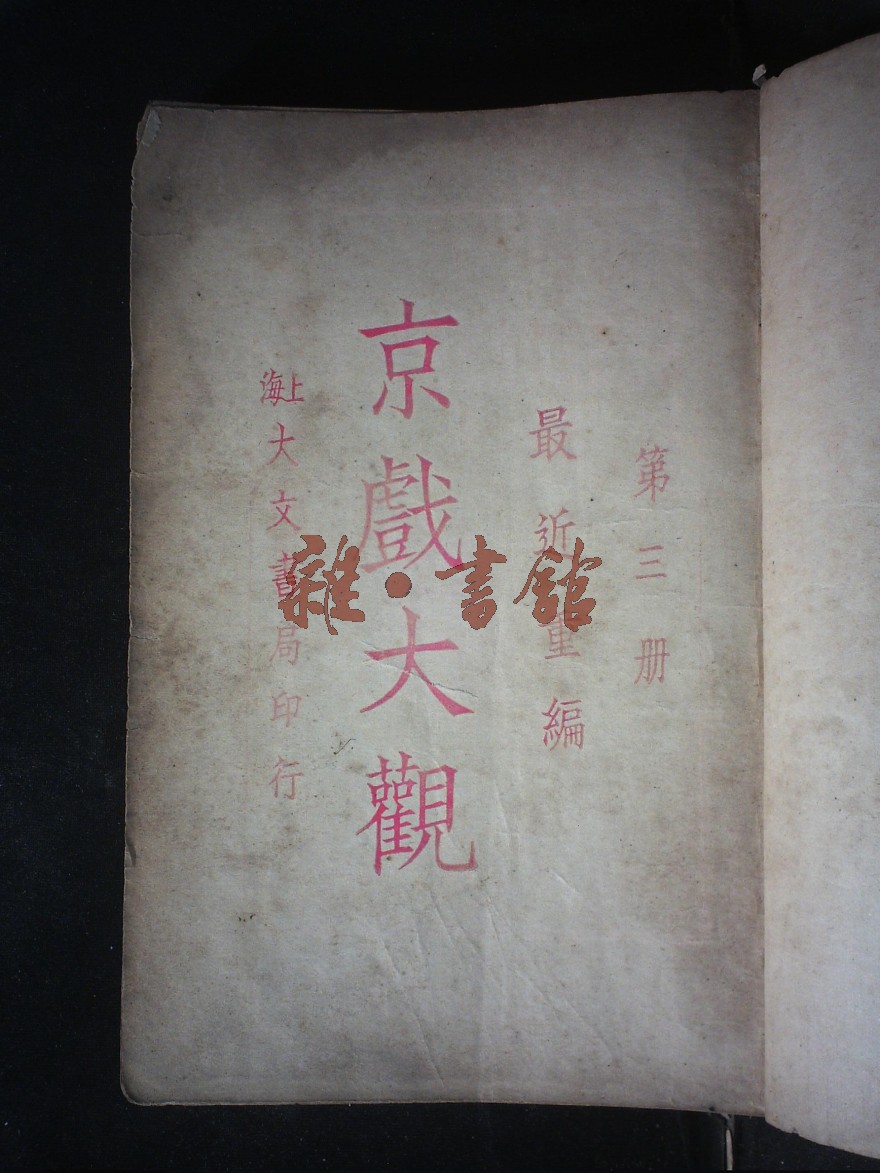 第三册
最近重編
京戲大觀
上海大文書局印行
雜·書館